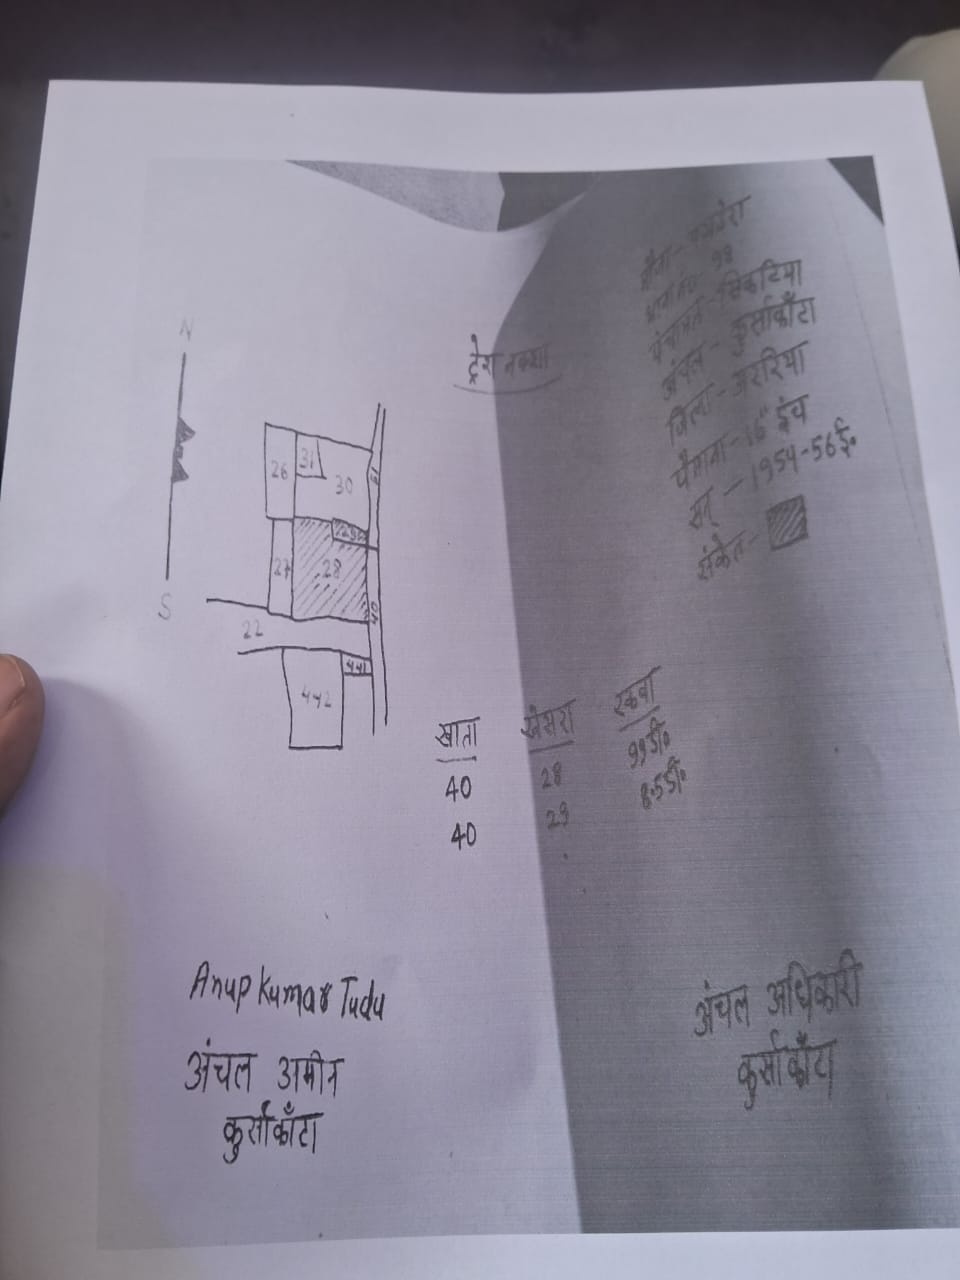 थाना नं० 99
पंचायत - सिकटिया
अंचल - कुर्साकाँटा
जिला - अररिया
पैमाना - 16" इंच
सन् - 1954-56 ई०
संकेत -
ट्रेश नक्शा
N
S
26
31
30
29
27
28
22
40
441
442
खाता खेसरा रकवा
40 28 99 डी०
40 29 8.5 डी०
Anup Kumar Tudu
अंचल अमीन
कुर्साकाँटा
अंचल अधिकारी
कुर्साकाँटा